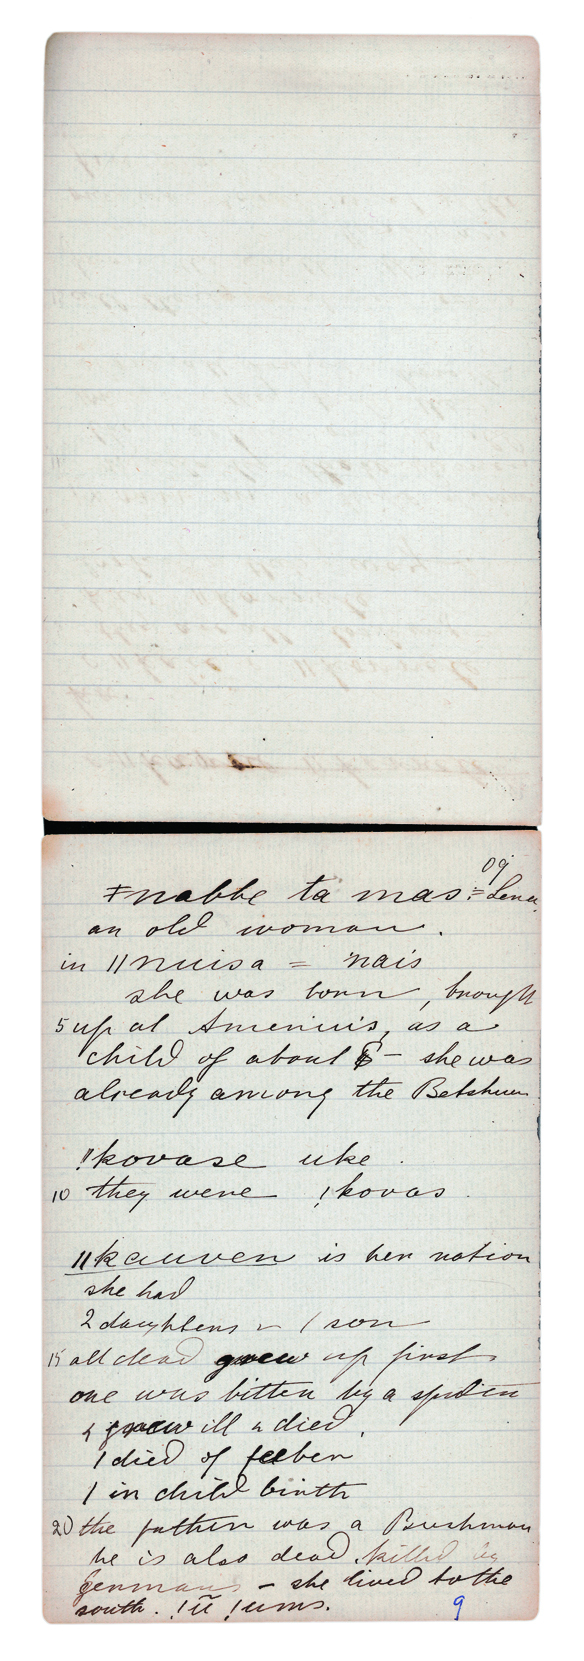 09
ǂnabbe ta mas = Lena
an old woman.
in ǁnuisa = nais
she was born, brough
5 up at Amenuis, as a
child of about 8 - she was
already among the Betshuan
!kovase uke.
10 they were !kovas.
ǁkauven is her nation
she had
2 daughters & 1 son
15 all dead grew up first
one was bitten by a spider
& grew ill & died,
1 died of feeber
1 in child birth
20 the father was a Bushman
he is also dead. killed by
Germans - she lived to the
south. !ū !ums.
9